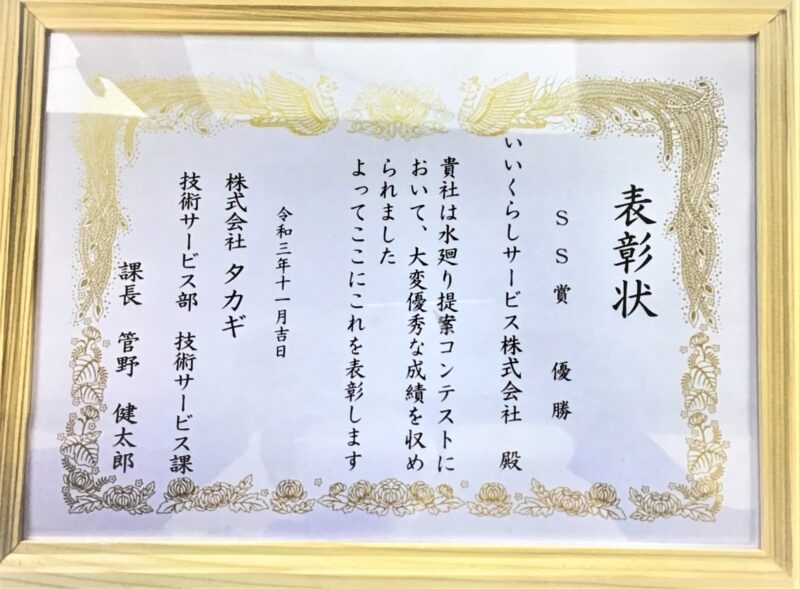 表彰状
SS賞 優勝
いいくらしサービス株式会社 殿
貴社は水廻り提案コンテストに
おいて、大変優秀な成績を収め
られました
よってここにこれを表彰します
令和三年十一月吉日
株式会社 タカギ
技術サービス部 技術サービス課
課長 管野 健太郎